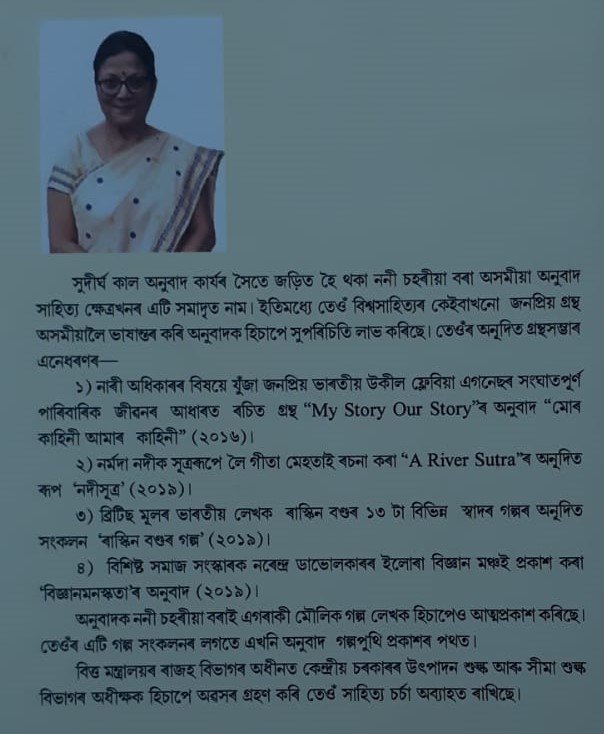 সুদীৰ্ঘ কাল অনুবাদ কাৰ্যৰ সৈতে জড়িত হৈ থকা ননী চহৰীয়া বৰা অসমীয়া অনুবাদ
সাহিত্য ক্ষেত্ৰখনৰ এটি সমাদৃত নাম। ইতিমধ্যে তেওঁ বিশ্বসাহিত্যৰ কেইবাখনো জনপ্ৰিয় গ্ৰন্থ
অসমীয়ালৈ ভাষান্তৰ কৰি অনুবাদক হিচাপে সুপৰিচিতি লাভ কৰিছে। তেওঁৰ অনূদিত গ্ৰন্থসম্ভাৰ
এনেধৰণৰ—
১) নাৰী অধিকাৰৰ বিষয়ে যুঁজা জনপ্ৰিয় ভাৰতীয় উকীল ফ্লেবিয়া এগনেছৰ সংঘাতপূৰ্ণ
পাৰিবাৰিক জীৱনৰ আধাৰত ৰচিত গ্ৰন্থ “My Story Our Story”ৰ অনুবাদ “মোৰ
কাহিনী আমাৰ কাহিনী” (২০১৬)।
২) নৰ্মদা নদীক সূত্ৰৰূপে লৈ গীতা মেহতাই ৰচনা কৰা “A River Sutra”ৰ অনূদিত
ৰূপ ‘নদীসূত্ৰ’ (২০১৯)।
৩) ব্ৰিটিছ মূলৰ ভাৰতীয় লেখক ৰাস্কিন বণ্ডৰ ১৩ টা বিভিন্ন স্বাদৰ গল্পৰ অনূদিত
সংকলন ‘ৰাস্কিন বণ্ডৰ গল্প’ (২০১৯)।
৪) বিশিষ্ট সমাজ সংস্কাৰক নৰেন্দ্ৰ ডাভোলকাৰৰ ইলোৰা বিজ্ঞান মঞ্চই প্ৰকাশ কৰা
‘বিজ্ঞানমনস্কতা’ৰ অনুবাদ (২০১৯)।
অনুবাদক ননী চহৰীয়া বৰাই এগৰাকী মৌলিক গল্প লেখক হিচাপেও আত্মপ্ৰকাশ কৰিছে।
তেওঁৰ এটি গল্প সংকলনৰ লগতে এখনি অনুবাদ গল্পপুথি প্ৰকাশৰ পথত।
বিত্ত মন্ত্ৰালয়ৰ ৰাজহ বিভাগৰ অধীনত কেন্দ্ৰীয় চৰকাৰৰ উৎপাদন শুল্ক আৰু সীমা শুল্ক
বিভাগৰ অধীক্ষক হিচাপে অৱসৰ গ্ৰহণ কৰি তেওঁ সাহিত্য চৰ্চা অব্যাহত ৰাখিছে।